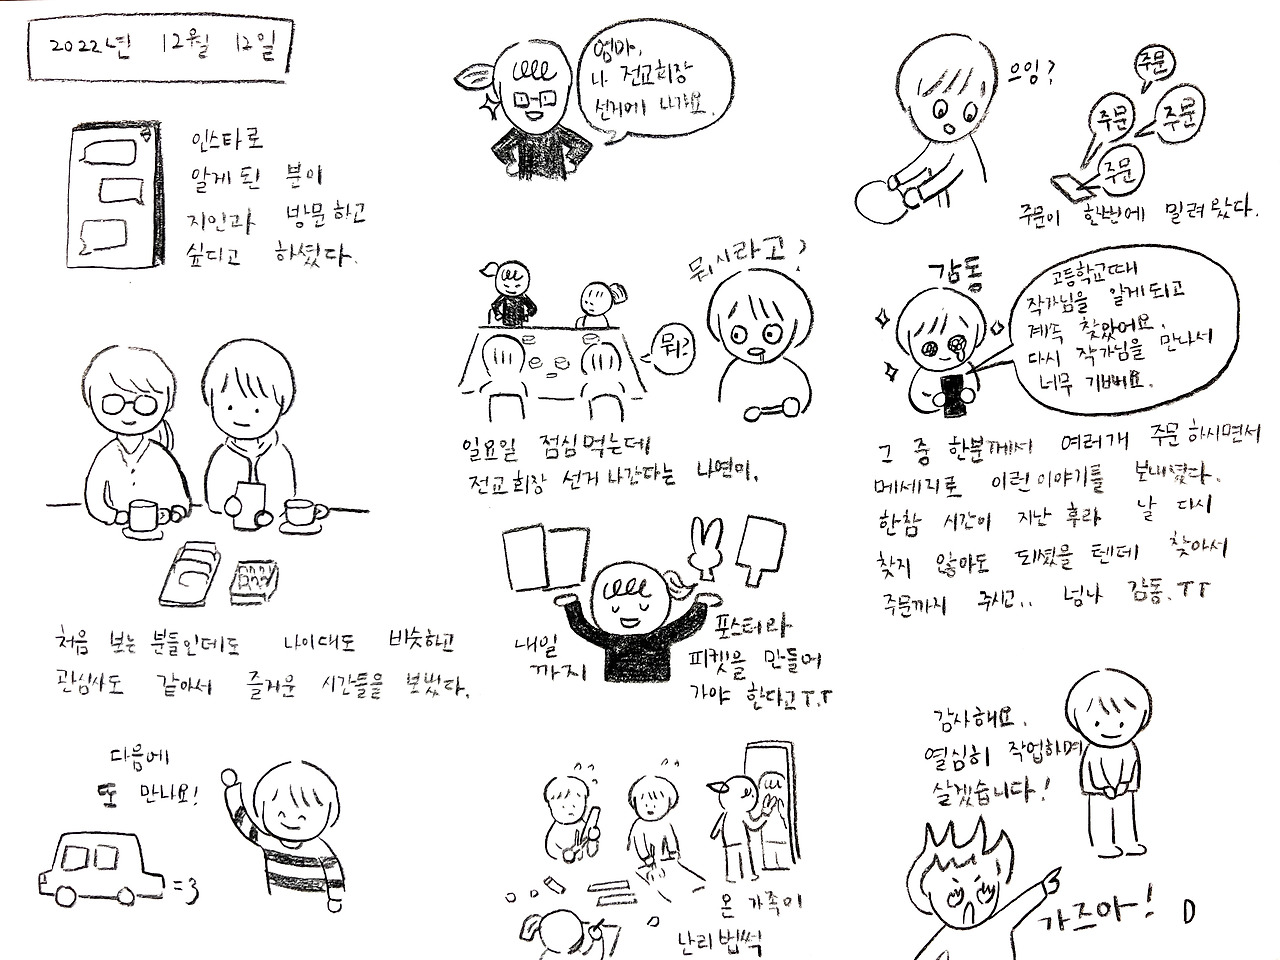 2022년 12월 12일
인스타로
알게 된 분이
지인과 방문하고
싶다고 하셨다.
처음 보는 분들인데도 나이대도 비슷하고
관심사도 같아서 즐거운 시간들을 보냈다.
다음에
또 만나요!
엄마,
나 전교회장
선거에 나가요.
뭐시라고?
뭐?
일요일 점심 먹는데
전교회장 선거 나간다는 나연이.
내일
까지
포스터랑
피켓을 만들어
가야 한다고 T.T
온 가족이
난리 법썩
으잉?
주문
주문
주문
주문
주문이 한번에 밀려 왔다.
감동
고등학교때
작가님을 알게되고
계속 찾았어요.
다시 작가님을 만나서
너무 기뻐요.
그 중 한분께서 여러개 주문하시면서
메세지로 이런 이야기를 보내셨다.
한참 시간이 지난 후라 날 다시
찾지 않아도 되셨을 텐데 찾아서
주문까지 주시고.. 넘나 감동.TT
감사해요.
열심히 작업하며
살겠습니다!
가즈아!